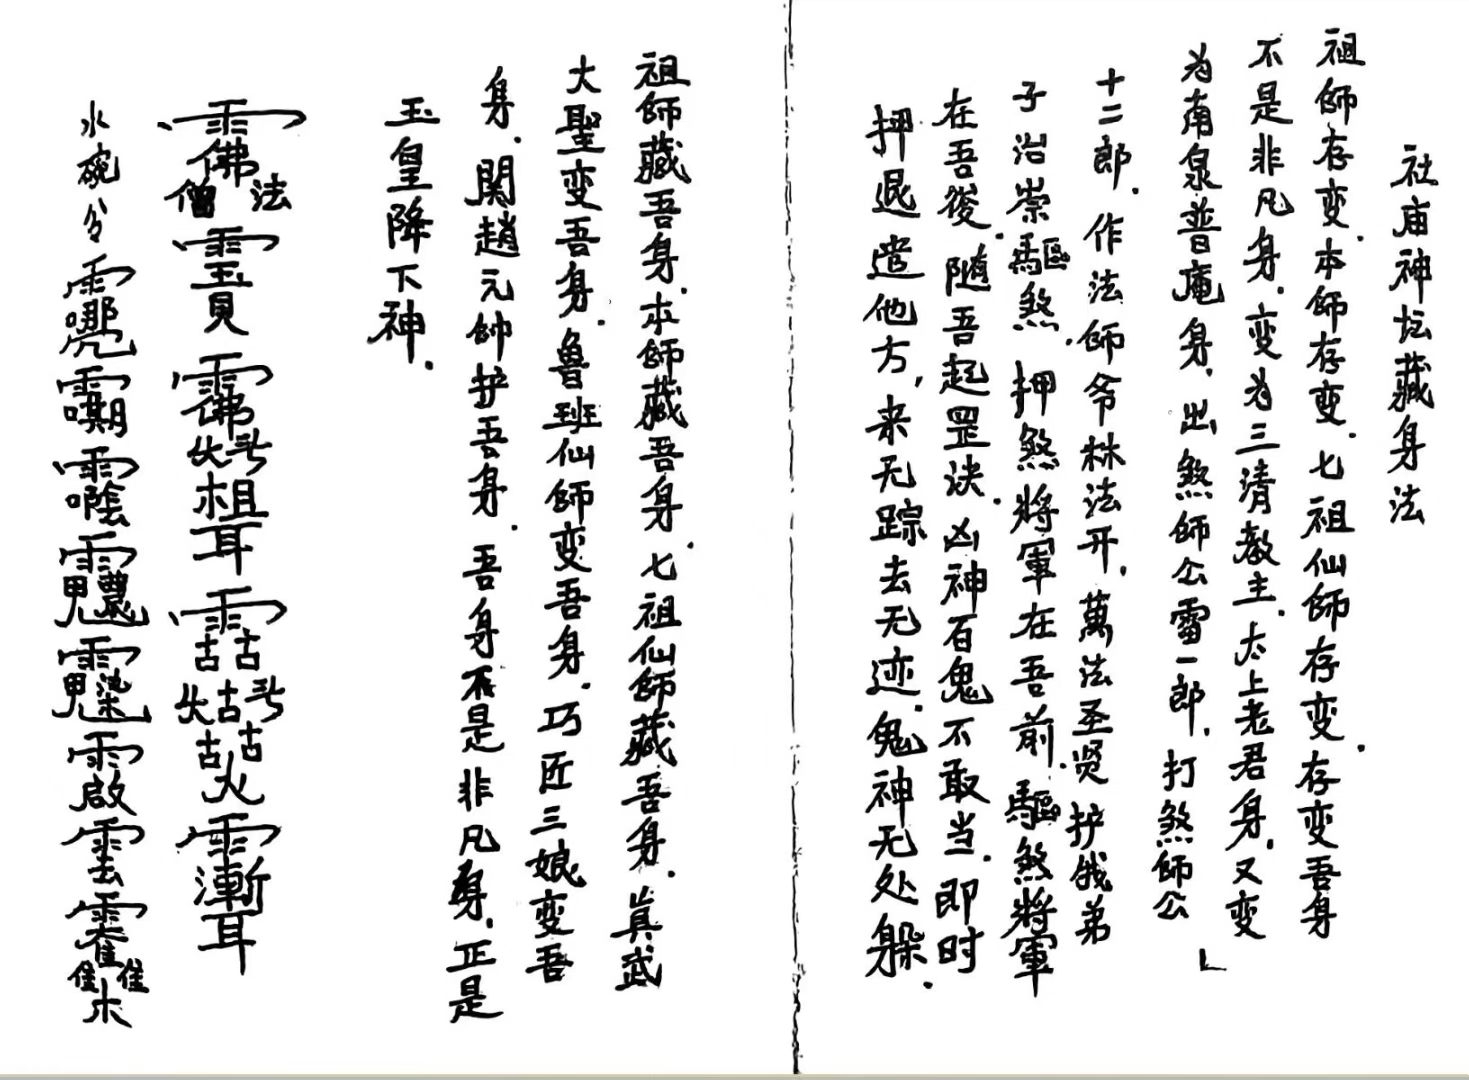 社庙神坛藏身法
祖師存变.本師存变.七祖仙師存变.存变吾身
不是非凡身.变为三清教主.太上老君身.又变
为南泉普庵身.出煞師公雷一郎.打煞師公
十二郎.作法師爷林法开.萬法圣贤护俄弟
子治崇驅煞.押煞將軍在吾前.驅煞將軍
在吾後.随吾起罡决.凶神百鬼不敢当.即时
押退遣他方,来无踪去无迹.鬼神无处躲.
祖師藏吾身.本師藏吾身.七祖仙師藏吾身.真武
大聖变吾身.魯班仙師变吾身.巧匠三娘变吾
身.関趙元帅护吾身.吾身不是非凡身.正是
玉皇降下神.
水碗分